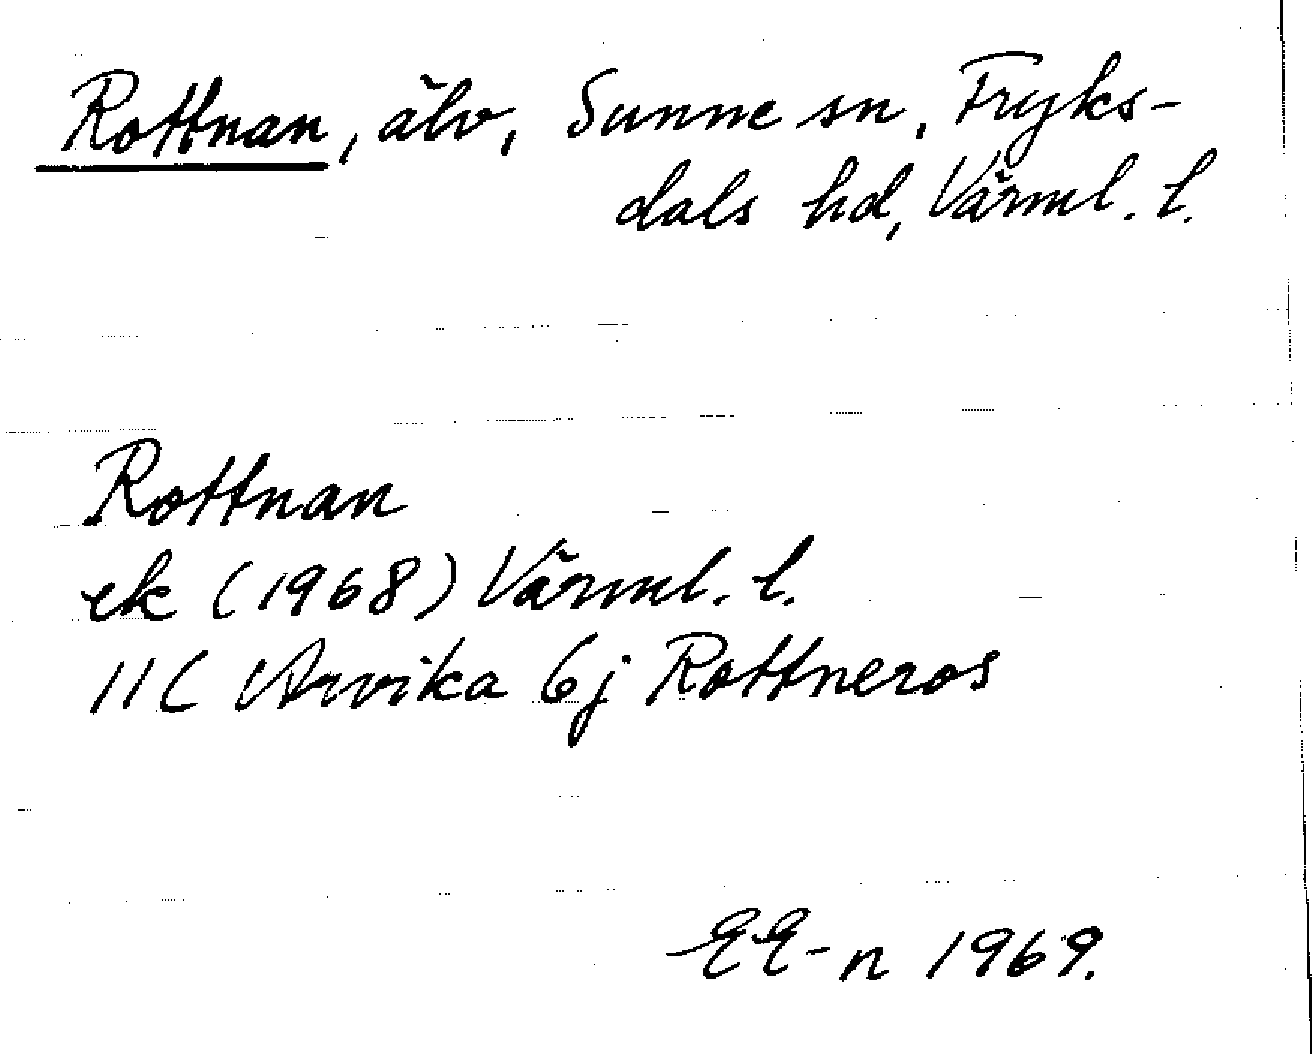 Rottnan, älv, Sunne sn, Fryks-
dals hd, Värml. l.
Rottnan
ek (1968) Värml. l.
11C Arvika 6j Rottneros
EE-n 1969.